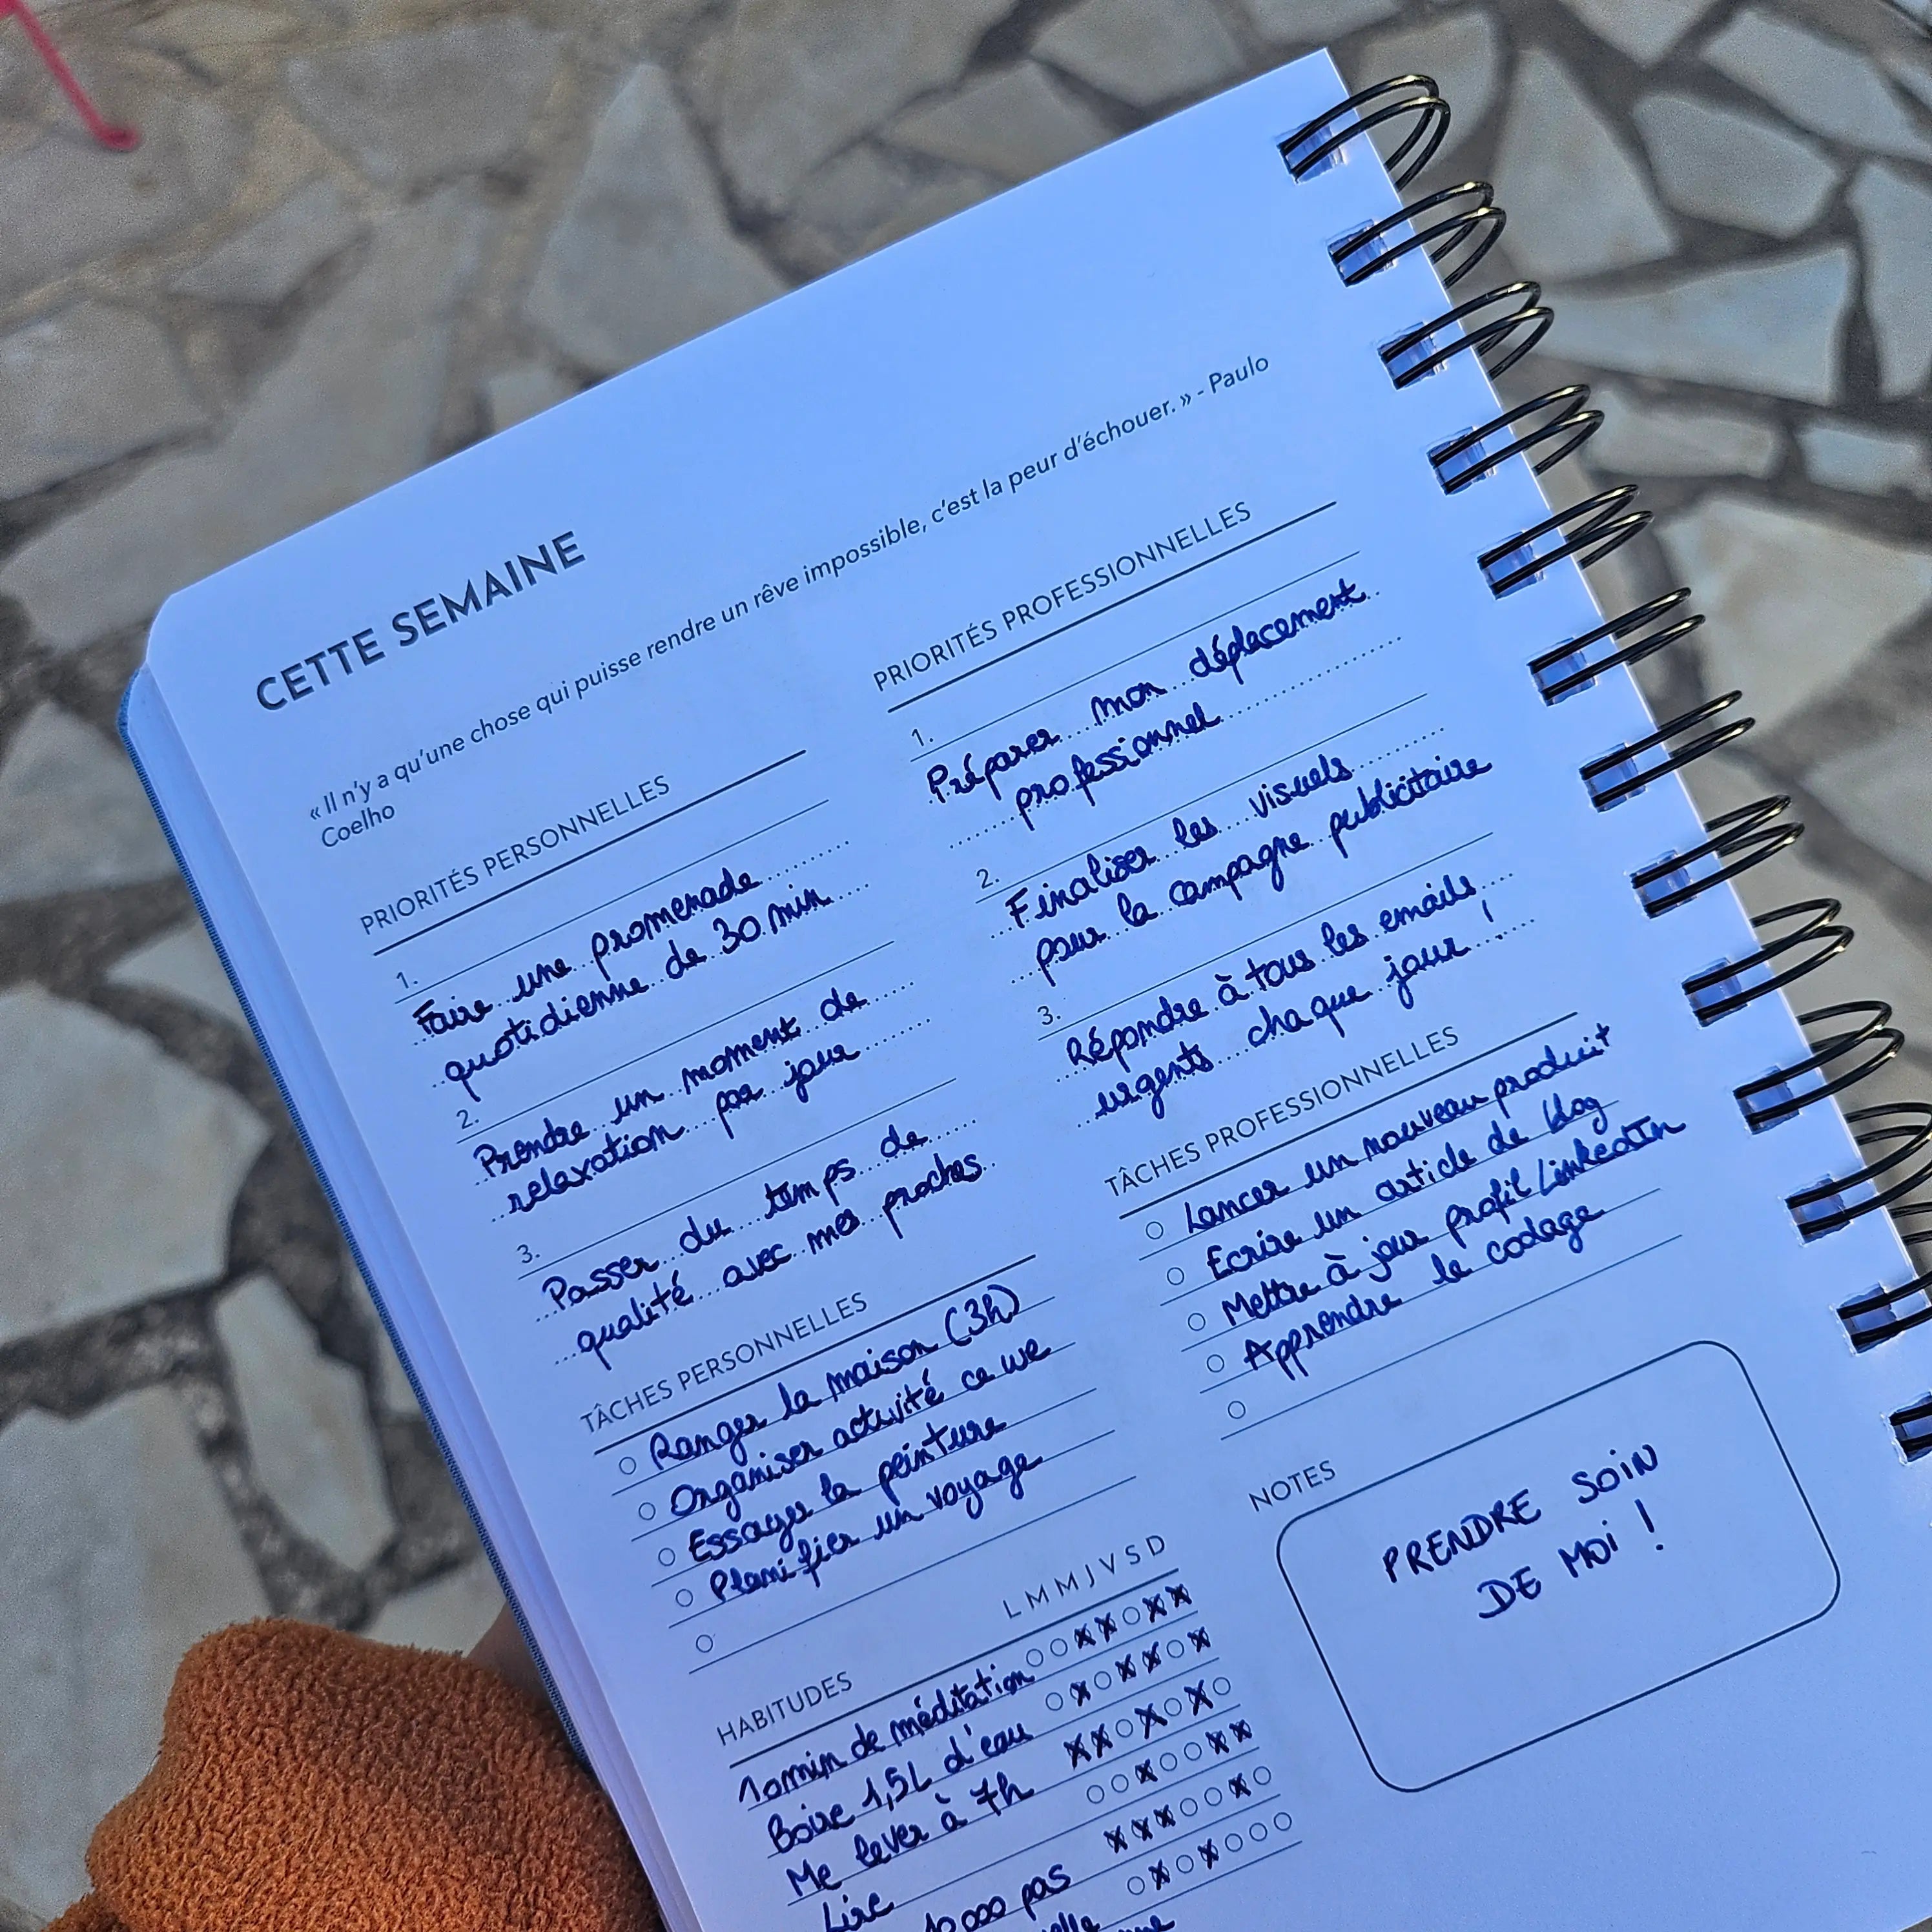 CETTE SEMAINE
« Il n'y a qu'une chose qui puisse rendre un rêve impossible, c'est la peur d'échouer. » - Paulo
Coelho
PRIORITÉS PERSONNELLES
1.
Faire une promenade
quotidienne de 30 min
2.
Prendre un moment de
relaxation par jour
3.
Passer du temps de
qualité avec mes proches
TÂCHES PERSONNELLES
Ranger la maison (3h)
Organiser activité ce we
Essayer la peinture
Planifier un voyage
HABITUDES
L M M J V S D
10min de méditation
Boire 1,5L d'eau
Me lever à 7h
Lire
10 000 pas
PRIORITÉS PROFESSIONNELLES
1.
Préparer mon déplacement
professionnel
2.
Finaliser les visuels
pour la campagne publicitaire
3.
Répondre à tous les emails
urgents chaque jour !
TÂCHES PROFESSIONNELLES
Lancer un nouveau produit
Ecrire un article de blog
Mettre à jour profil LinkedIn
Apprendre le codage
NOTES
PRENDRE SOIN
DE MOI !